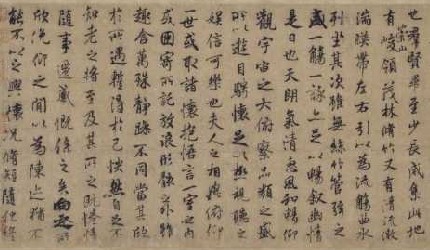 也群賢畢至少長咸集此地
有崇山峻領茂林脩竹又有清流激
湍暎帶左右引以為流觴曲水
列坐其次雖無絲竹管弦之
盛一觴一詠亦足以暢敘幽情
是日也天朗氣清惠風和暢仰
觀宇宙之大俯察品類之盛
所以遊目騁懷足以極視聽之
娛信可樂也夫人之相與俯仰
一世或取諸懷抱悟言一室之內
或因寄所託放浪形骸之外雖
趣舍萬殊靜躁不同當其欣
於所遇暫得於己怏然自足不
知老之將至及其所之既惓情
隨事遷感慨係之矣向之所
欣俛仰之間以為陳迹猶不
能不以之興懷況脩短隨化終